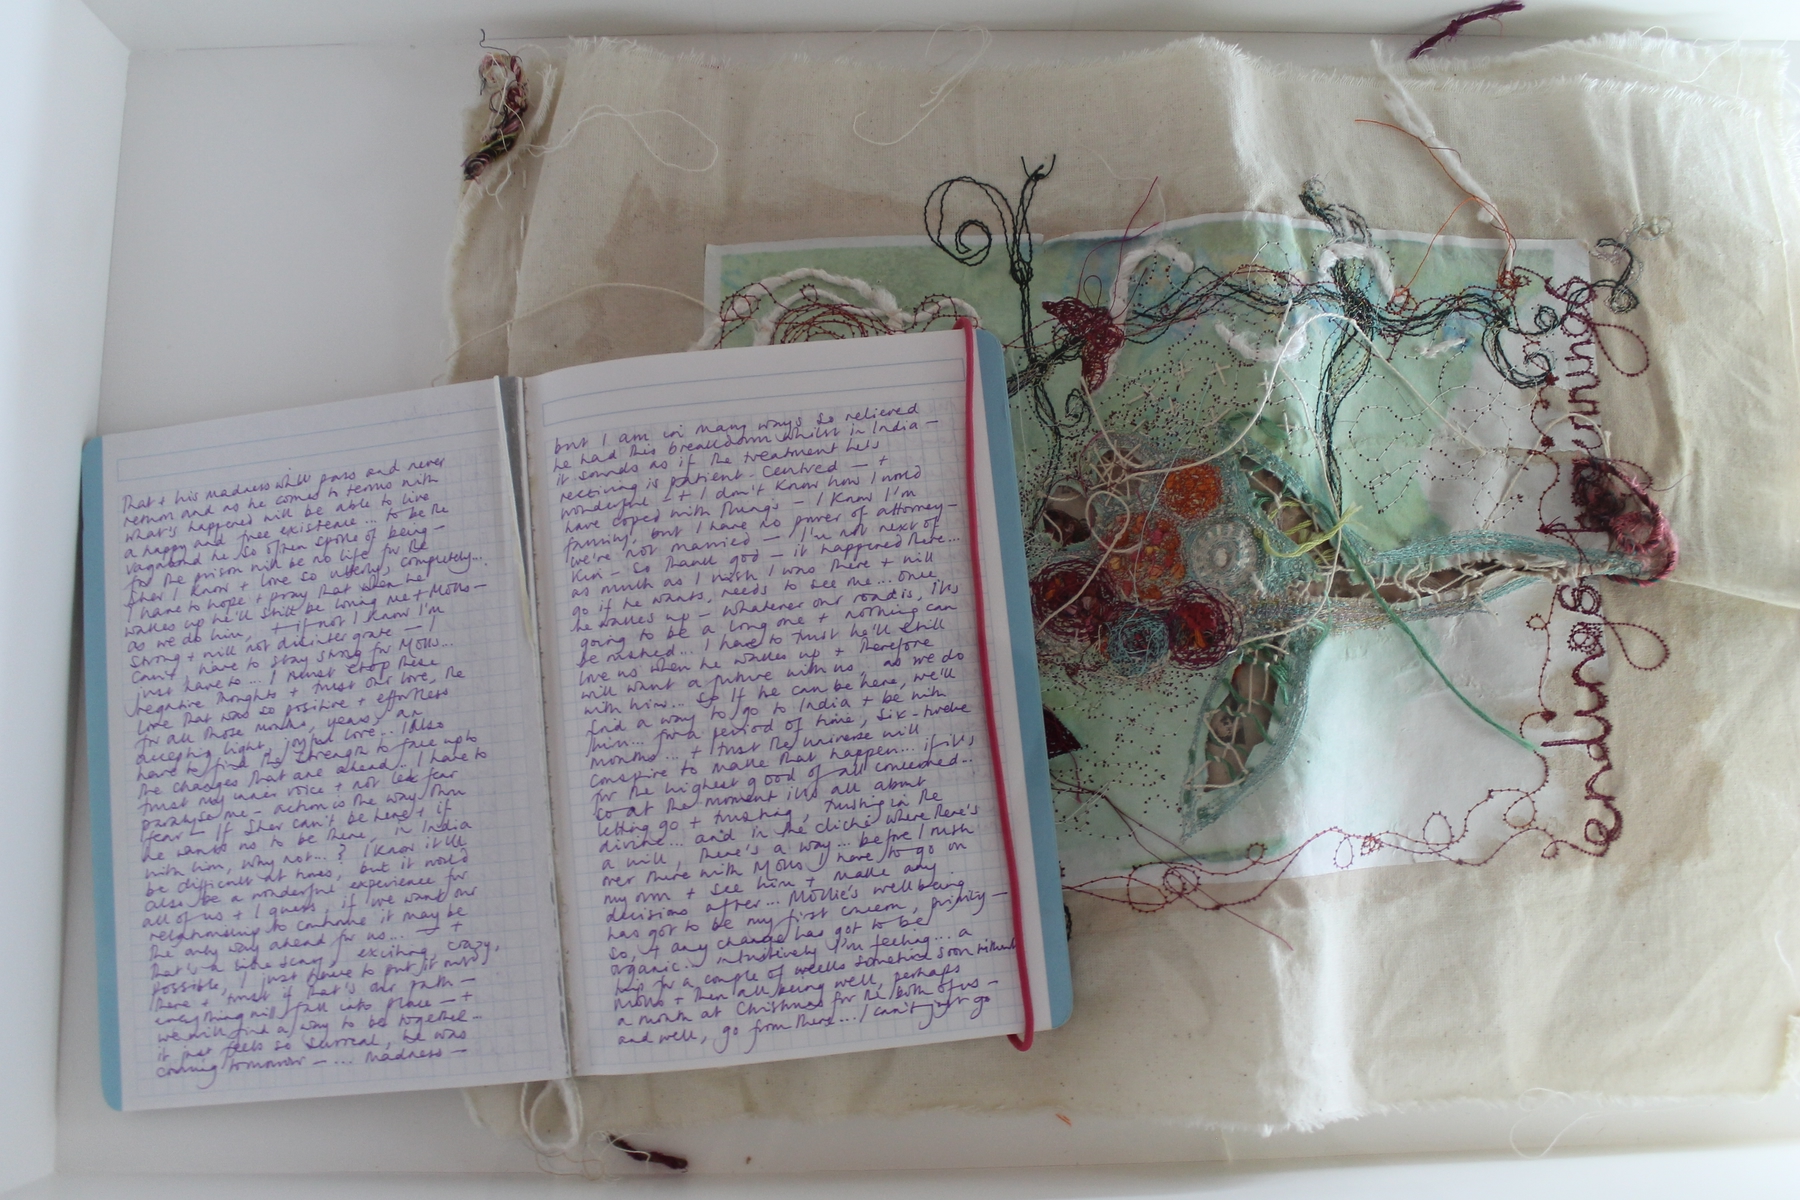 that + his madness will pass and never
return and as he comes to terms with
what's happened will be able to live
a happy and free existence... to be the
vagabond he so often spoke of being —
for the prison will be no life for the
Sher I know + love so utterly, completely...
I have to hope + pray that when he
wakes up he'll still be loving me + Molls —
as we do him, + if not I know I'm
strong + will not disintegrate — I
can't, have to stay strong for Molls...
just have to... I must stop these
negative thoughts + trust our love, the
love that was so positive + effortless
for all those months, years, an
accepting light, joyful love... I also
have to find the strength to face up to
the changes that are ahead.. I have to
trust my inner voice + not let fear
paralyse me — action is the way thru
fear — If Sher can't be here + if
he wants us to be there, in India
with him, why not...? I know it'll
be difficult at times, but it would
also be a wonderful experience for
all of us + I guess if we want our
relationship to continue it may be
the only way ahead for us... — +
that's a scary, exciting, crazy,
possible, I just have to put it out
there + trust if that's our path —
everything will fall into place — +
we will find a way to be together...
it just feels so surreal, he was
coming tomorrow — ... madness —
but I am in many ways so relieved
he had this breakdown whilst in India —
it sounds as if the treatment he's
receiving is patient. centred — +
wonderful — + I don't know how I would
have coped with things — I know I'm
family, but I have no power of attorney —
we're not married — I'm not next of
kin — so thank god — it happened there...
as much as I wish I was there + will
go if he wants, needs to see me... once
he wakes up — whatever our road is, it's
going to be a long one + nothing can
be rushed... I have to trust he'll still
love us when he wakes up + therefore
will want a future with us — as we do
with him... So if he can't be here, we'll
find a way to go to India + be with
him... for a period of time, six-twelve
months... + trust the universe will
conspire to make that happen... if it's
for the highest good of all concerned..
so at the moment it's all about
letting go + trusting, trusting in the
divine... and in the cliché where there's
a will, there's a way... before I rush
over there with Molls I have to go on
my own + see him + make any
decisions after... Mollie's wellbeing
has got to be my first concern, priority —
so, if any change has got to be
organic.. intuitively I'm feeling... a
trip for a couple of weeks sometime soon without
Molls + then all being well, perhaps
a month at Christmas for the both of us —
and well, go from there... I can't just go
endings
beginnings